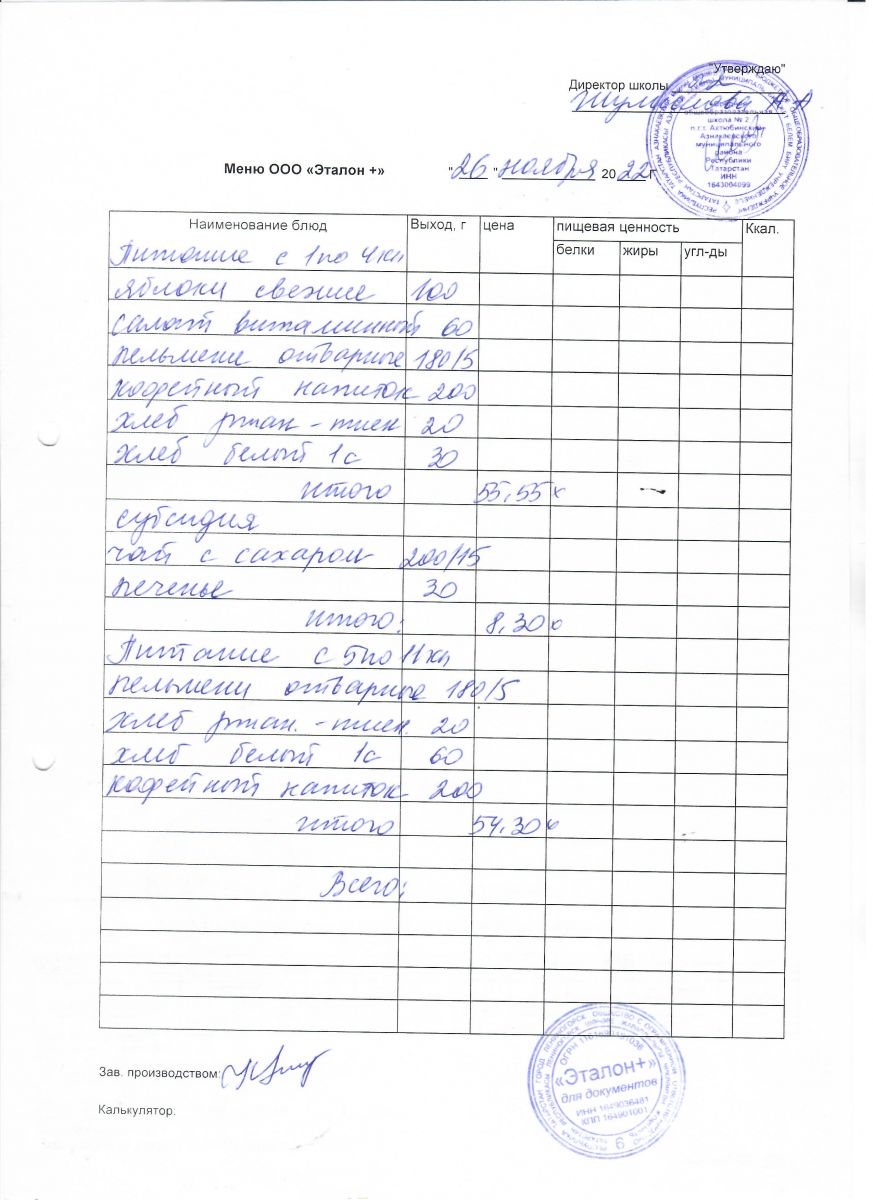 "Утверждаю"
Директор школы
Меню ООО «Эталон +» "26" ноября 2022 г
общеобразовательная
школа № 2
п.г.т. Актюбинский
Азнакаевского
муниципального
района
Республики
Татарстан
ИНН
1643004099
Наименование блюд Выход, г цена пищевая ценность Ккал.
белки жиры угл-ды
Питание с 1 по 4 кл
яблоки свежие 100
салат витаминный 60
пельмени отварные 180/5
кофейный напиток 200
хлеб ржан - пшен 20
хлеб белый 1с 30
итого 55,55 к
субсидия
чай с сахаром 200/15
печенье 30
итого: 8,30 к
Питание с 5 по 11 кл
пельмени отварные 180/5
хлеб ржан. - пшен. 20
хлеб белый 1с 60
кофейный напиток 200
итого 54,30 к
Всего:
Зав. производством:
Калькулятор:
«Эталон+»
для документов
ИНН 1649036481
КПП 164901001